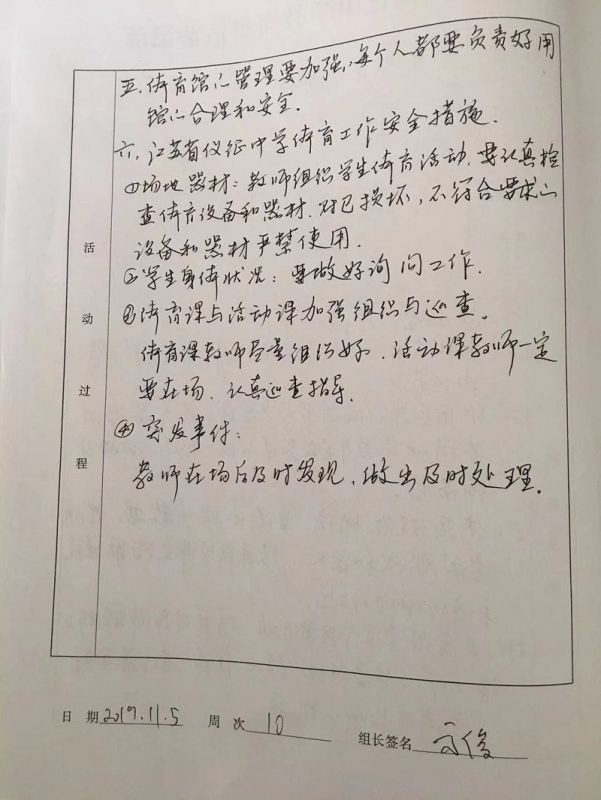 五.体育馆的管理要加强,每个人都要负责好用
馆的合理和安全.
六.江苏省仪征中学体育工作安全措施.
①场地器材:教师组织学生体育活动,要认真检
查体育设备和器材.对已损坏,不符合要求的
设备和器材严禁使用.
②学生身体状况:要做好询问工作.
③体育课与活动课加强组织与巡查。
体育课教师尽量组织好、活动课教师一定
要在场、认真巡查指导.
④突发事件:
教师在场后及时发现,做出及时处理。
活动过程
日期 2019.11.5 周次 10 组长签名